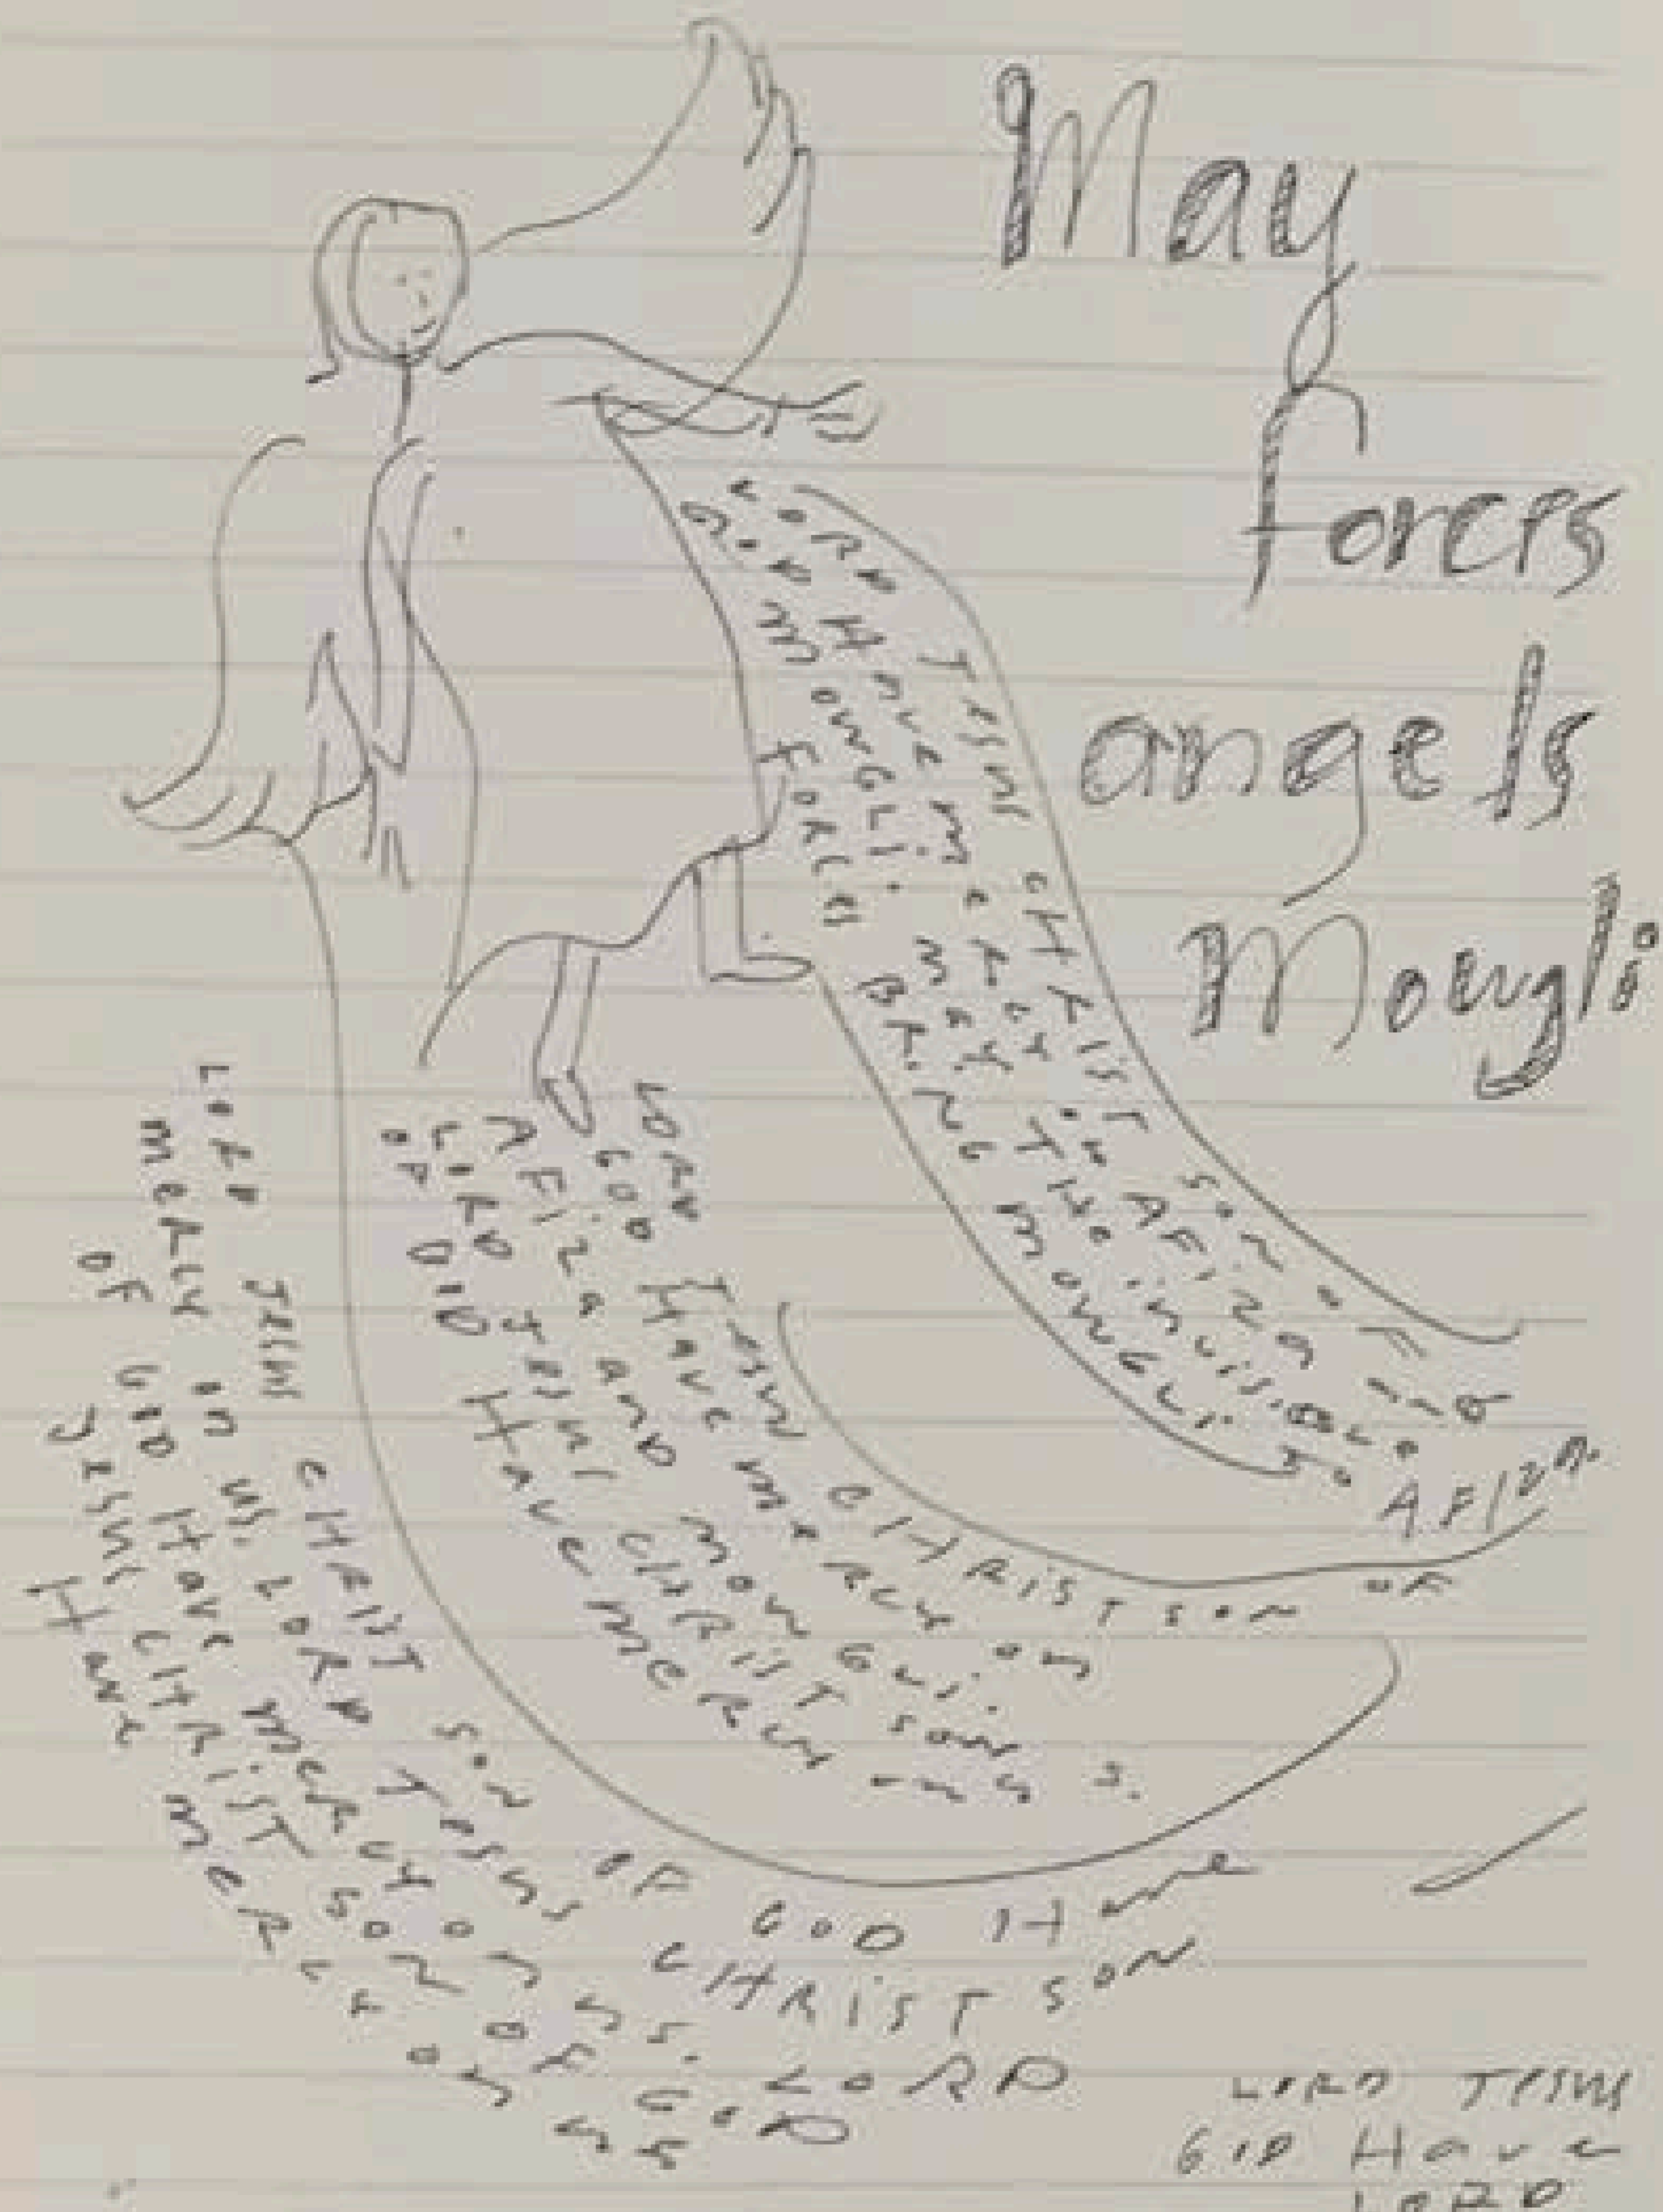 May
forces
angels
Mowgli
LORD JESUS CHRIST SON OF
GOD HAVE MERCY ON AFIZA
MOWGLI. MAY THE INVISIBLE
FORCES BRING MOWGLI TO
AFIZA.
LORD JESUS CHRIST SON OF
GOD HAVE MERCY ON
AFIZA AND MOWGLI.
LORD JESUS CHRIST SON
OF GOD HAVE MERCY ON US.
LORD JESUS CHRIST SON OF GOD Have
MERCY ON US. LORD JESUS CHRIST SON
OF GOD HAVE MERCY ON US. LORD
JESUS CHRIST SON OF GOD
HAVE MERCY ON US
LORD JESUS
GOD Have
LORD